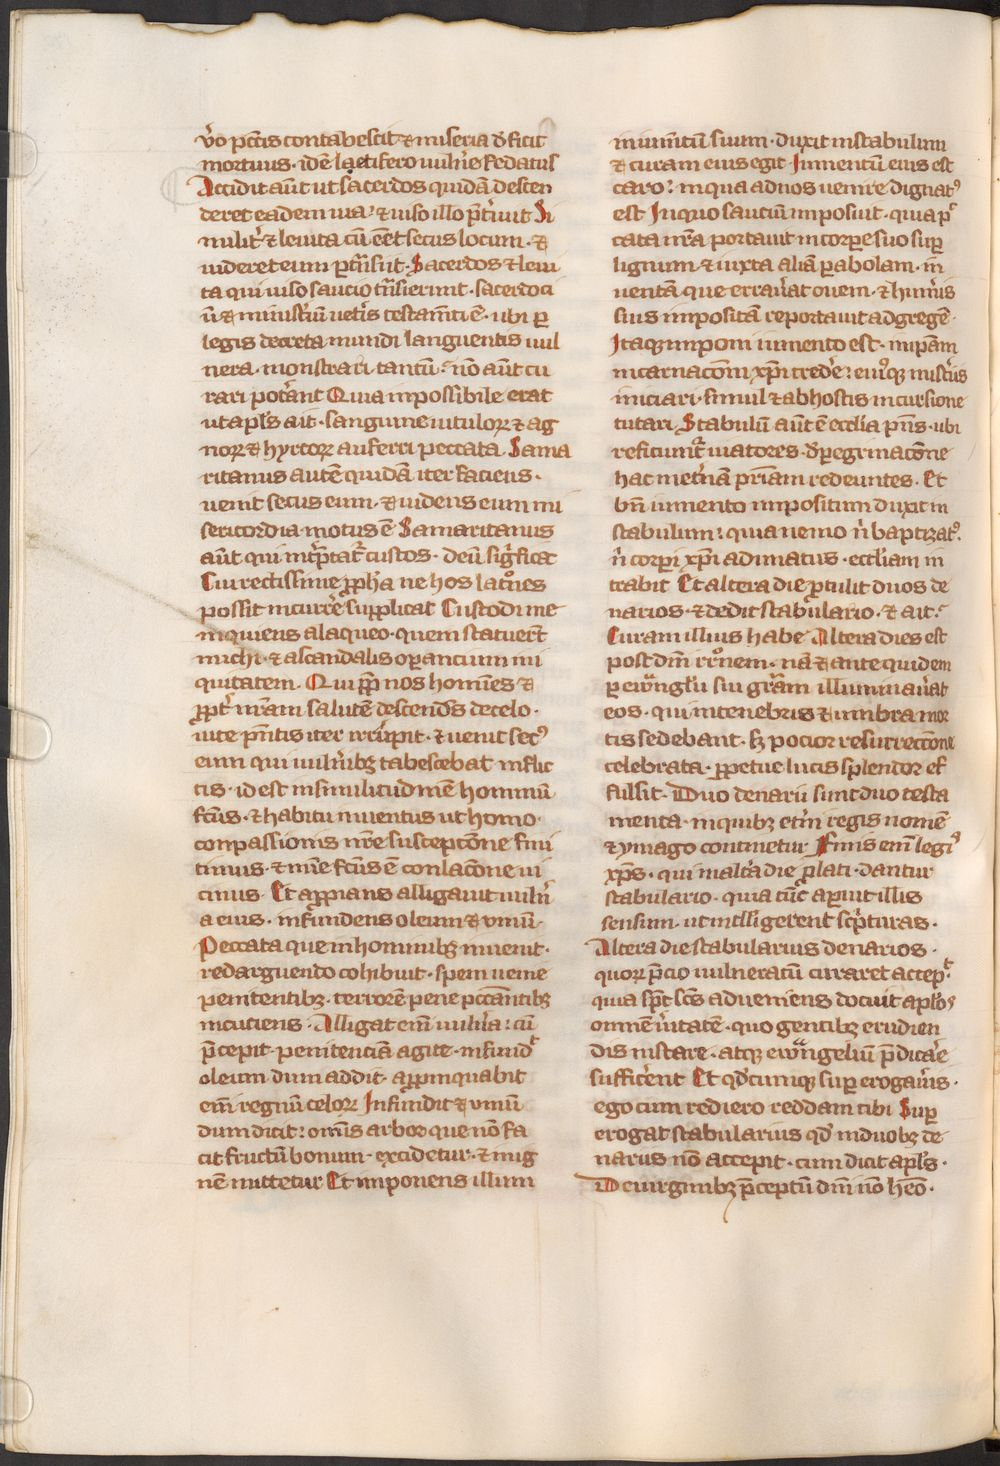 ũo pctis contabescit ⁊ miseria dʼficit
mortuus · idē laetifero uulnʼe fedatus
Accidit aūt ut sacerdos quidā descen
deret eadem uia · ⁊ uiso illo p̃tʼiuit Si
militʼ ⁊ leuita cū eēt secus locum · ⁊
uideret eum ꝑtnʼsiit · Sacerdos ⁊ leui
ta qui uiso saucio trʼsierunt · sacerdoci
ū ⁊ ministʼiū uetʼis testamʼti ē · ubi ꝑ
legis decreta mundi languentis uul
nera · monstrari tantū · nō aūt cu
rari potʼant Quia inpossibile erat
ut apls ait · sanguine uitulorꝝ ⁊ ag
norꝝ ⁊ hyrcorꝝ auferri peccata Sama
ritanus autē quidā iter faciens ·
uenit secus eum · ⁊ uidens eum mi
sericordia motus ē Samaritanus
aūt qui intʼptatʼ custos · deū sigʼficat
Cui rectissime ꝓpħa ne hos latōnes
possit incurrʼe supplicat Custodi me
inquiens a laqueo · quem statuert̄
michi · ⁊ a scandalis oꝑancium ini
quitatem · Qui ꝓp̄ nos homīes ⁊
ꝓptʼ nrām salutē descendēs de celo ·
uite pn̄tis iter arrʼipit · ⁊ uenit secꝰ
eum qui uulnʼibꝫ tabescebat inflic
tis · id est in similitudinē hominū
fcūs · ⁊ habitu inuentus ut homo ·
conpassionis nrē susceptōne fini
timus · ⁊ mīe fcūs ē conlacōne ui
cinus · Et appians alligauit uulnʼ
a eius · infundens oleum ⁊ uinū ·
Peccata que in hominibꝫ inuenit ·
redarguendo cohibuit · spem uenie
penitentibꝫ · terrorē pene pccantibꝫ
incutiens · Alligat em̄ uulnʼa : cū
p̄cepit · penitenciā agite · infundʼ
oleum · dum addit · appinquabit
em̄ regnū celorꝝ Infundit ⁊ uinū
dum dicit : omīs arbor que nō fa
cit fructū bonum · excidetur · ⁊ in ig
nē mittetur Et inponens illum
in iumtū suum · duxit in stabulum
⁊ curam eius egit Iumentū eius est
caro : in qua ad nos uenire dignatꝰ
est In quo sauciū inposuit · quia pc
cata nrā portauit in corpꝫe suo suꝑ
lignum · ⁊ iuxta aliā parabolam · in
uentā que errauʼat ouem · ⁊ humʼis
suis inpositā reportauit ad gregē ·
Itaqꝫ inponi iumento est · in ip̄am
incarnacōm xp̄i credʼe : eiusqꝫ mistʼiis
iniciari · simul ⁊ ab hostis incursione
tutari Stabulū aūt ē ecclīa pn̄s · ubi
reficiuntʼ uiatores · dʼ ꝑegrinacōne
hac in etʼnā pʼriam redeuntes · Et
bn̄ iumento inpositum duxit in
stabulum : quia nemo nʼ baptizatꝰ
nʼ corpi xp̄i adunatus · ecclīam in
trabit Et altera die ꝓtulit duos de
narios · ⁊ dedit stabulario · ⁊ ait ·
Curam illius habe Altera dies est
post dn̄i rrōnem · nā ⁊ ante quidem
ꝑ ewāngl̄ii sui grām illuminauʼat
eos · qui in tenebris ⁊ in umbra mor
tis sedebant · sꝫ pocior resurrectōne
celebrata · ꝑpetue lucis splendor ef
fulsit · Duo denarii sunt duo testa
menta · in quibꝫ etʼni regis nomē
⁊ ymago continetur Finis em̄ legꝰ
xp̄s · qui in altʼa die p̄lati · dantur
stabulario · quia tūc aꝑuit illis
sensum · ut intelligerent scp̄turas ·
Altera die stabularius denarios ·
quorꝝ p̄cio uulneratū curaret accepʼ
quia spc̄ scs̄ adueniens docuit aplōs
omnē uʼitatē · quo gentibꝫ erudien
dis instare · atqꝫ ewāngeliū p̄dicaʼe
sufficʼent Et qdʼcumqꝫ suꝑ erogauʼis ·
ego cum rediero reddam tibi Suꝑ
erogat stabularius qdʼ in duobꝫ de
nariis nō accepit · cum dicit apls̄ ·
De uirginibꝫ p̄ceptū dn̄i nō heō ·